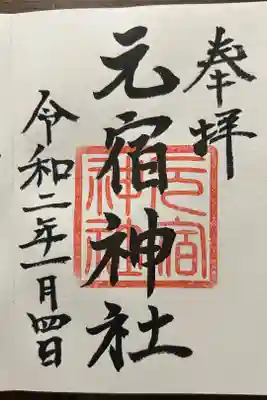 奉拝
元宿神社
元宿神社
令和二年一月四日